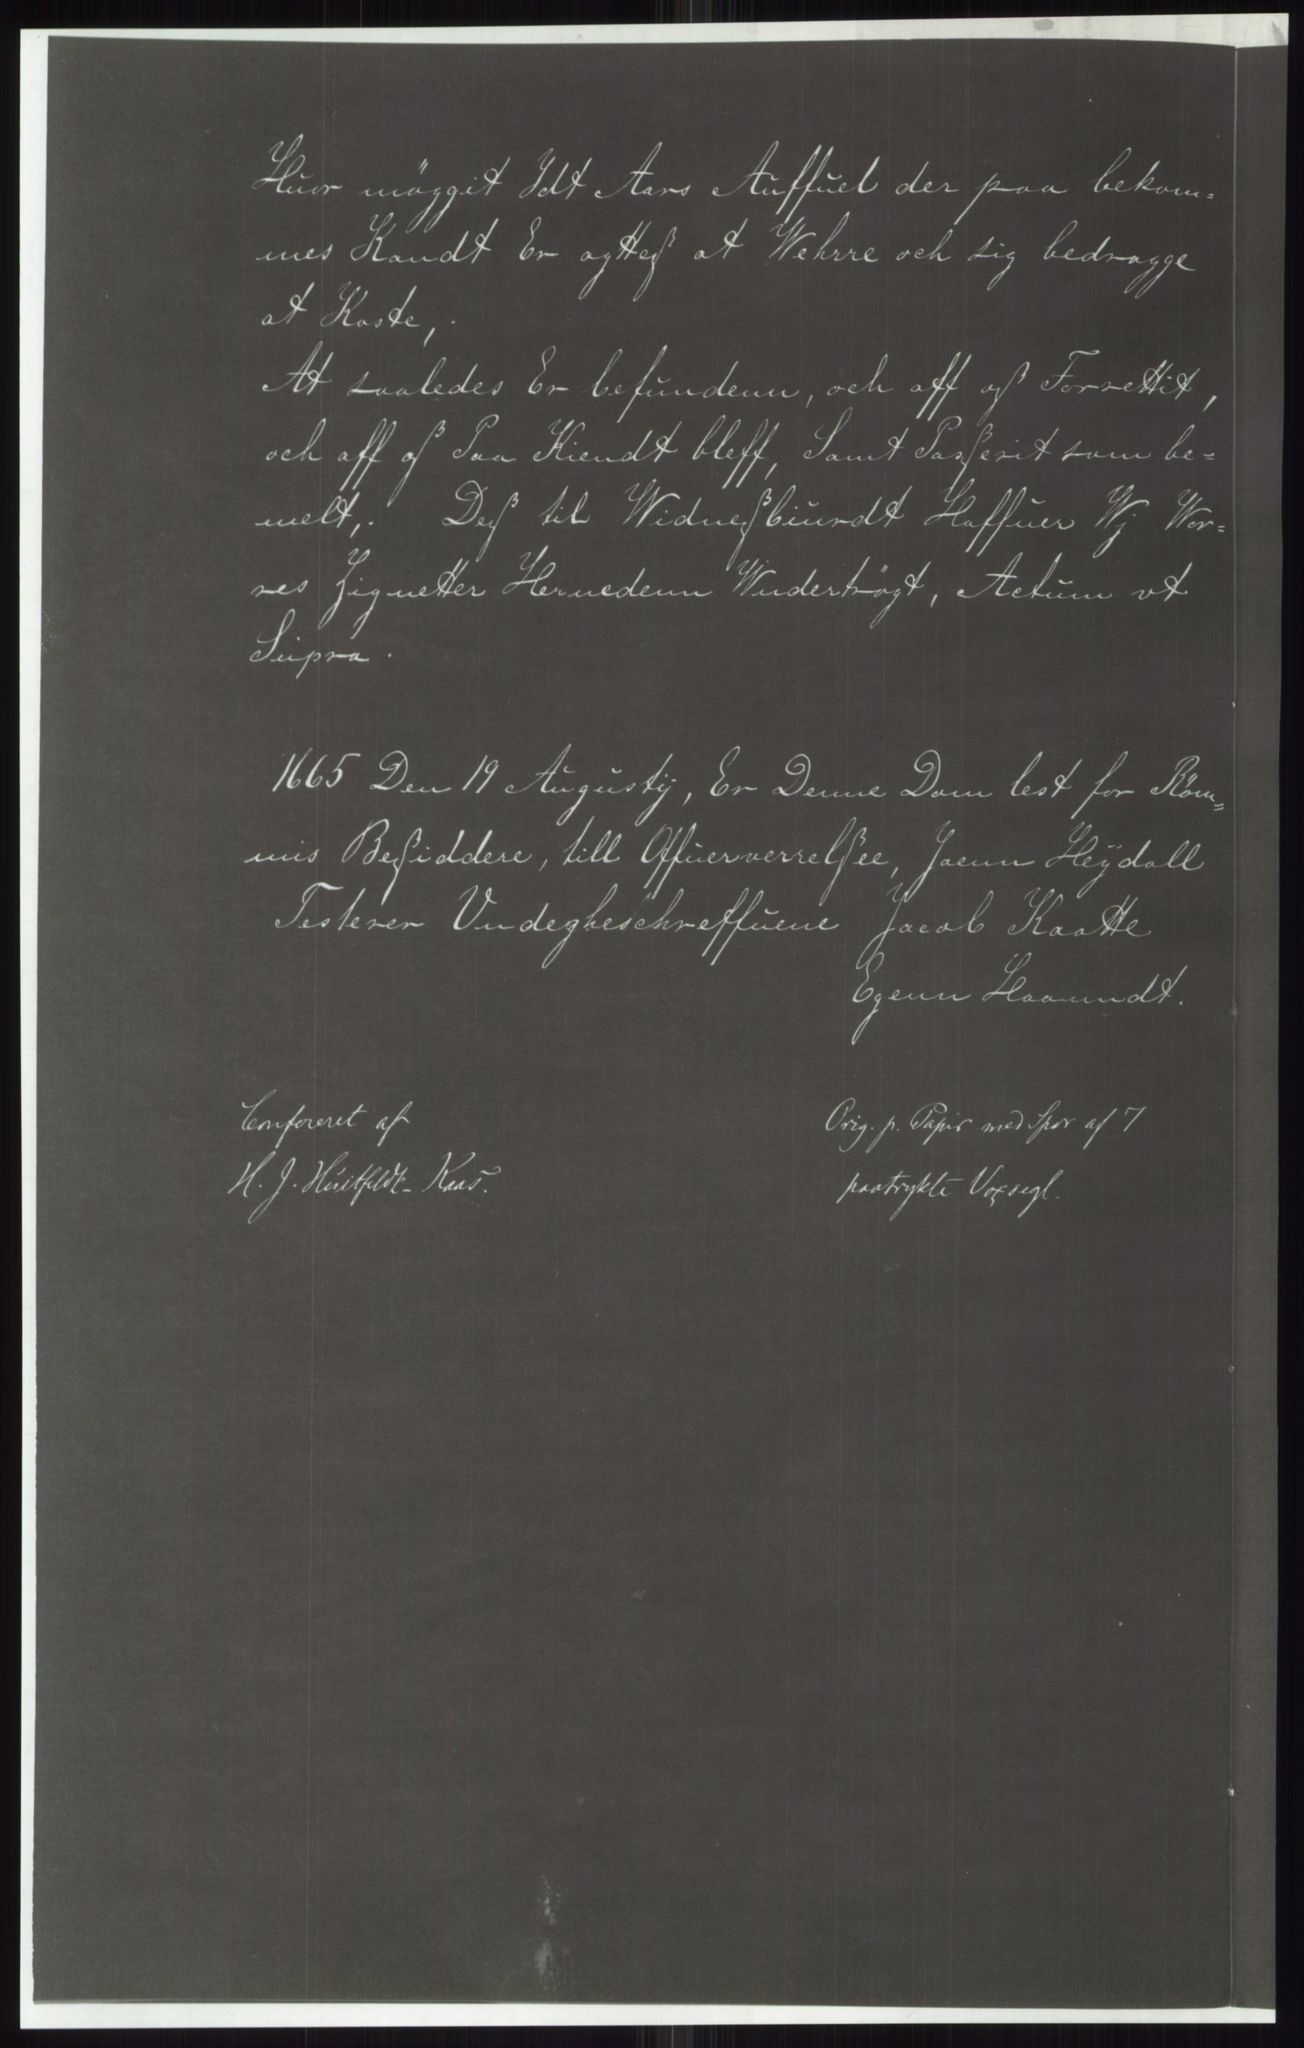 Huor möggit Idt Aars Auffuel der paa bekom=
mes Kandt Er agtteß at Wehrre och sig bedragge
at Koste,.
At saaledes Er befundenn, och aff oß Forrettit,
och aff oß Paa Kiendt bleff, Samt Paßerit som be=
melt,. Deß til Widneßbiurdt Haffuer Wj Wor=
res Zignetter Hernedenn Wndertrögt, Actum vt
Supra.
1665 Den 19 Augustij, Er Denne Dom lest for Röm=
mis Beßiddere, till Offuerverrelßee, Joenn Heÿdall
Testerer Vndegbeschreffuene Jacob Kaatte
Egenn Haanndt.
Confereret af
H. J. Huitfeldt-Kaas.
Orig. p. Papir med Spor af 7
paatrykte Voxsegl.